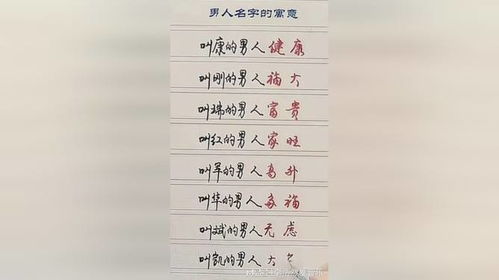 男人名字的寓意
叫康的男人健康
叫刚的男人福大
叫瑞的男人富贵
叫红的男人家旺
叫军的男人高升
叫华的男人多福
叫斌的男人无虑
叫凯的男人大